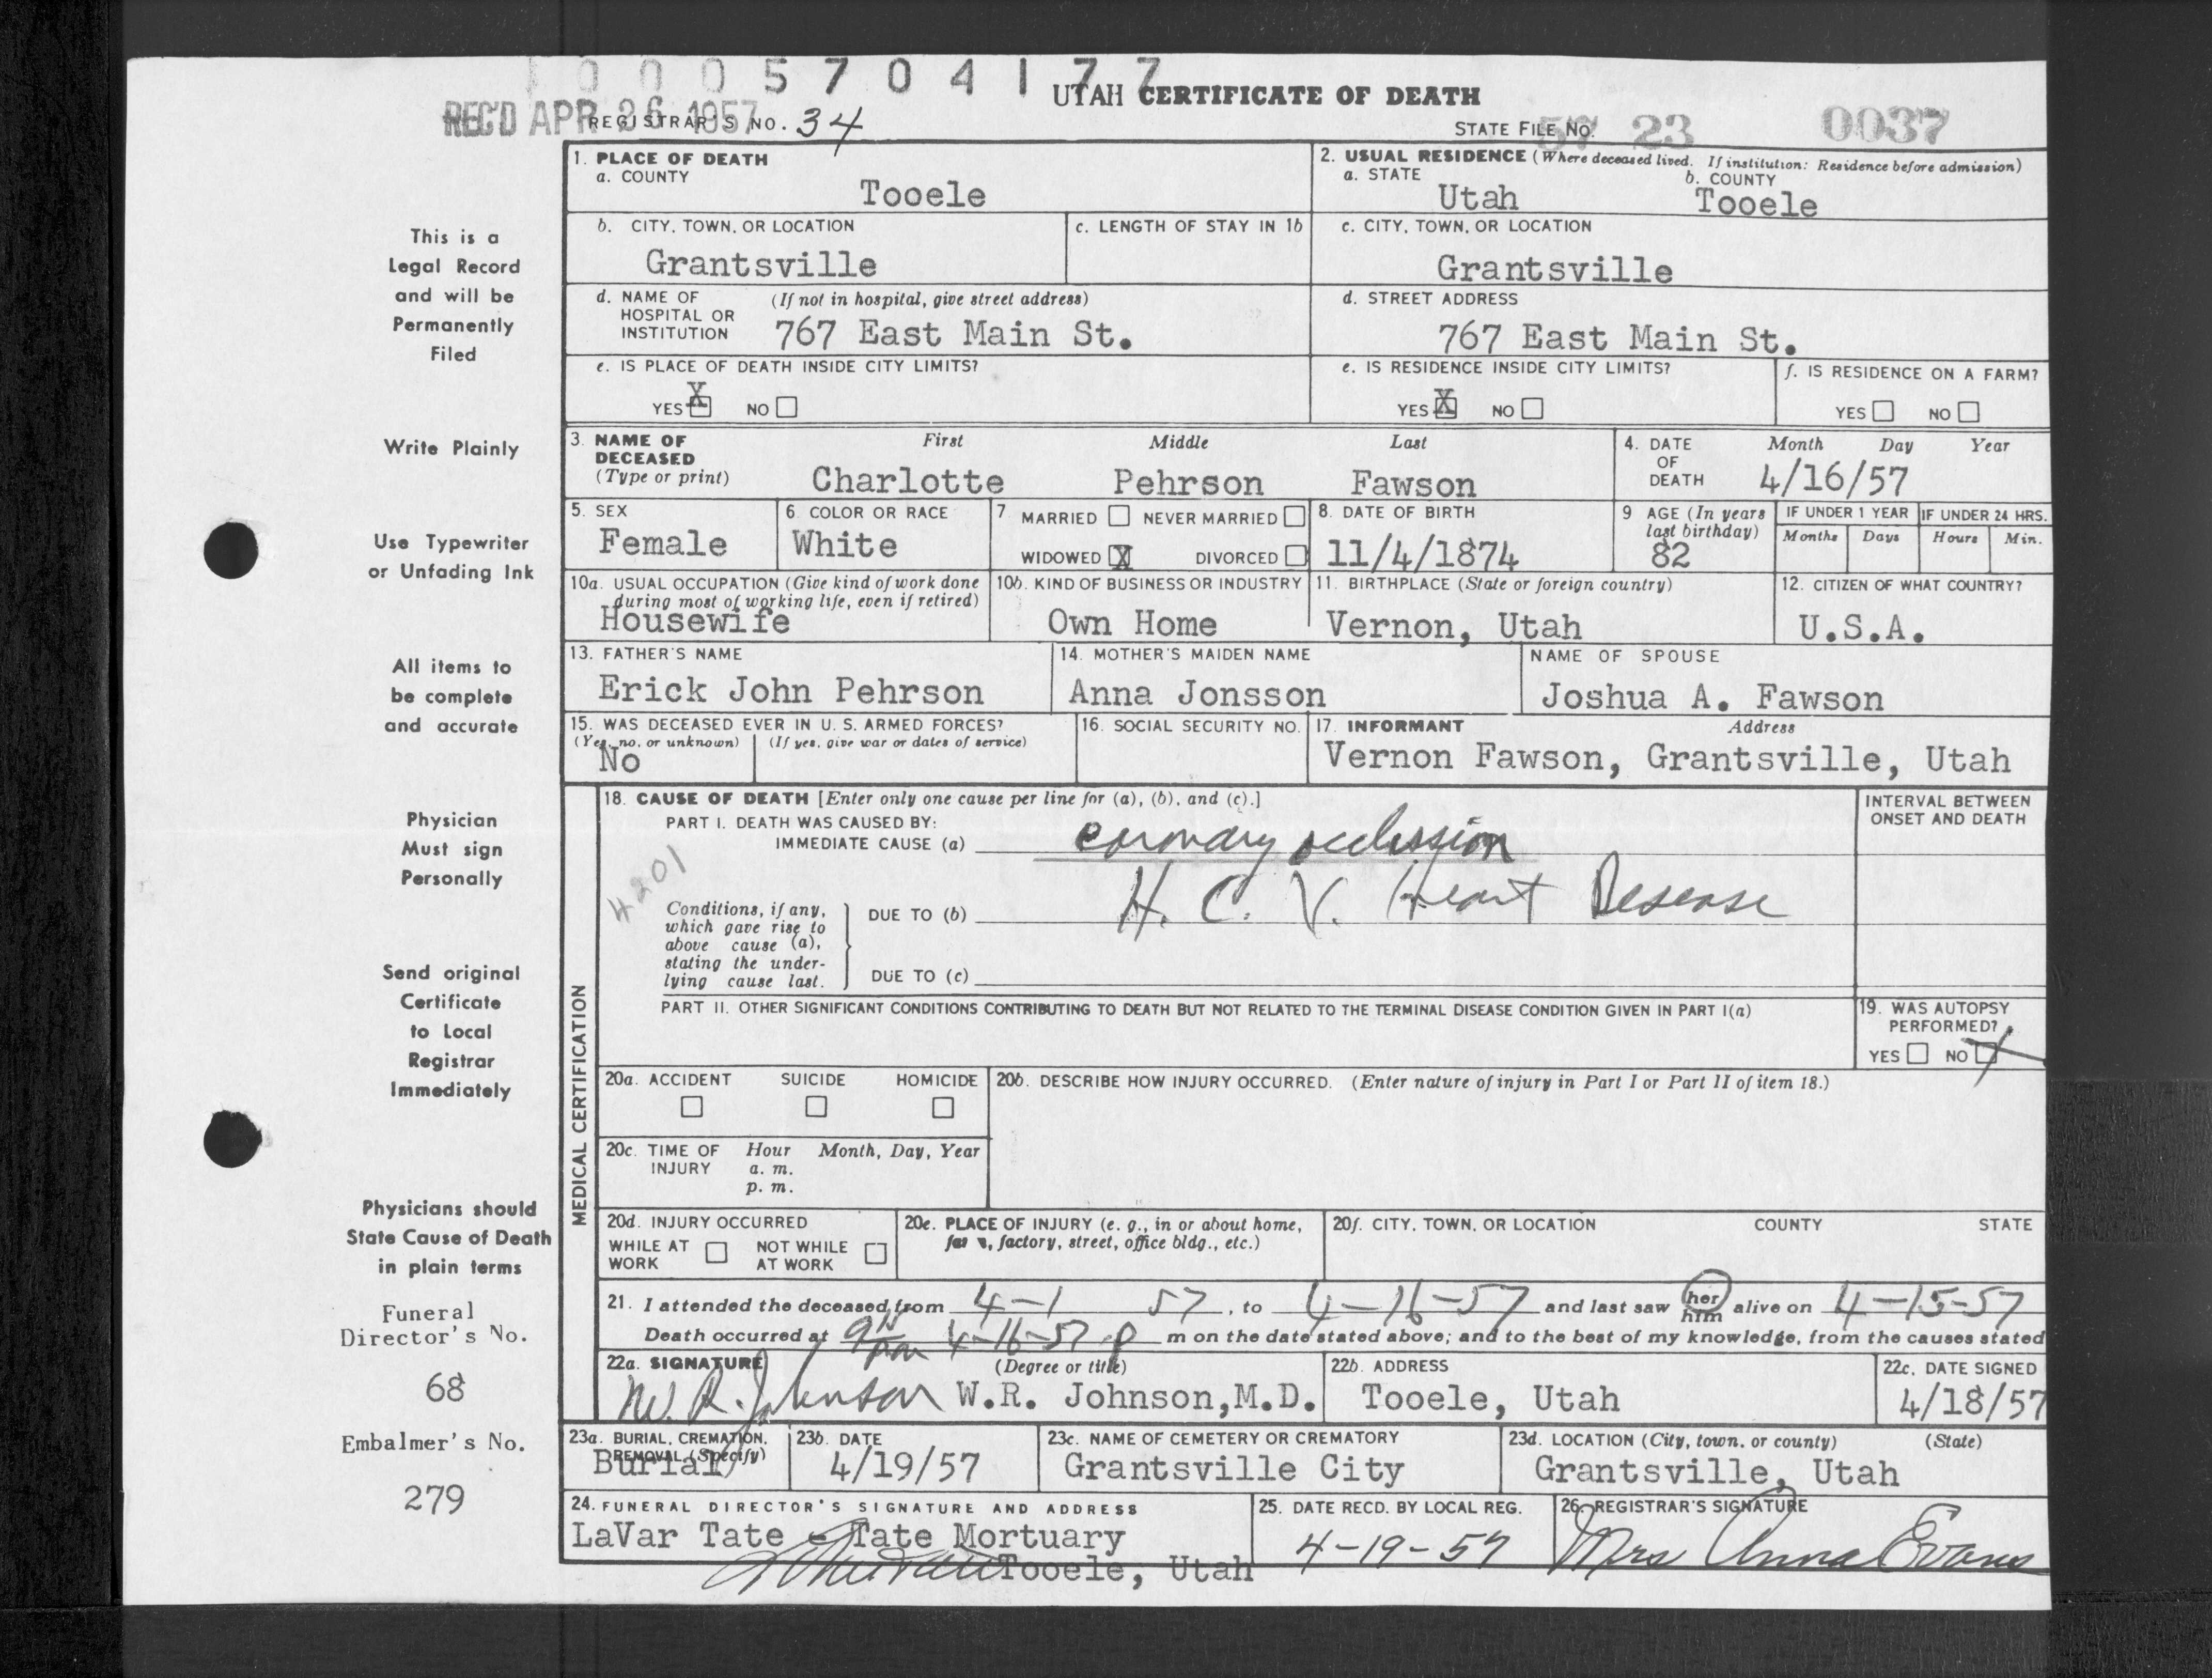 0 0 0 5 7 0 4 1 7 7
UTAH CERTIFICATE OF DEATH
REC'D APR 26 1957
REGISTRAR'S NO. 34
STATE FILE NO. 57 23 0037
This is a
Legal Record
and will be
Permanently
Filed
Write Plainly
Use Typewriter
or Unfading Ink
All items to
be complete
and accurate
Physician
Must sign
Personally
Send original
Certificate
to Local
Registrar
Immediately
Physicians should
State Cause of Death
in plain terms
Funeral
Director's No.
68
Embalmer's No.
279
1. PLACE OF DEATH
a. COUNTY
Tooele
2. USUAL RESIDENCE (Where deceased lived. If institution: Residence before admission)
a. STATE b. COUNTY
Utah Tooele
b. CITY, TOWN, OR LOCATION
Grantsville
c. LENGTH OF STAY IN 1b
c. CITY, TOWN, OR LOCATION
Grantsville
d. NAME OF (If not in hospital, give street address)
HOSPITAL OR
INSTITUTION 767 East Main St.
d. STREET ADDRESS
767 East Main St.
e. IS PLACE OF DEATH INSIDE CITY LIMITS?
YES X NO
e. IS RESIDENCE INSIDE CITY LIMITS?
YES X NO
f. IS RESIDENCE ON A FARM?
YES NO
3. NAME OF First Middle Last
DECEASED
(Type or print) Charlotte Pehrson Fawson
4. DATE Month Day Year
OF
DEATH 4/16/57
5. SEX
Female
6. COLOR OR RACE
White
7 MARRIED NEVER MARRIED
WIDOWED X DIVORCED
8. DATE OF BIRTH
11/4/1874
9 AGE (In years
last birthday)
82
IF UNDER 1 YEAR
Months Days
IF UNDER 24 HRS.
Hours Min.
10a. USUAL OCCUPATION (Give kind of work done
during most of working life, even if retired)
Housewife
10b. KIND OF BUSINESS OR INDUSTRY
Own Home
11. BIRTHPLACE (State or foreign country)
Vernon, Utah
12. CITIZEN OF WHAT COUNTRY?
U.S.A.
13. FATHER'S NAME
Erick John Pehrson
14. MOTHER'S MAIDEN NAME
Anna Jonsson
NAME OF SPOUSE
Joshua A. Fawson
15. WAS DECEASED EVER IN U. S. ARMED FORCES?
(Yes, no, or unknown) (If yes, give war or dates of service)
No
16. SOCIAL SECURITY NO.
17. INFORMANT Address
Vernon Fawson, Grantsville, Utah
MEDICAL CERTIFICATION
18. CAUSE OF DEATH [Enter only one cause per line for (a), (b), and (c).]
PART I. DEATH WAS CAUSED BY:
IMMEDIATE CAUSE (a) coronary occlussion
4201
Conditions, if any,
which gave rise to
above cause (a),
stating the under-
lying cause last.
DUE TO (b) H. C. V. Heart Desease
DUE TO (c)
INTERVAL BETWEEN
ONSET AND DEATH
PART II. OTHER SIGNIFICANT CONDITIONS CONTRIBUTING TO DEATH BUT NOT RELATED TO THE TERMINAL DISEASE CONDITION GIVEN IN PART I(a)
19. WAS AUTOPSY
PERFORMED?
YES NO
20a. ACCIDENT SUICIDE HOMICIDE
20b. DESCRIBE HOW INJURY OCCURRED. (Enter nature of injury in Part I or Part II of item 18.)
20c. TIME OF Hour Month, Day, Year
INJURY a. m.
p. m.
20d. INJURY OCCURRED
WHILE AT NOT WHILE
WORK AT WORK
20e. PLACE OF INJURY (e. g., in or about home,
factory, street, office bldg., etc.)
20f. CITY, TOWN, OR LOCATION COUNTY STATE
21. I attended the deceased from 4-1 57, to 4-16-57 and last saw her him alive on 4-15-57
Death occurred at 9 15 4-16-57 p m on the date stated above; and to the best of my knowledge, from the causes stated
22a. SIGNATURE (Degree or title)
W. R. Johnson W.R. Johnson,M.D.
22b. ADDRESS
Tooele, Utah
22c. DATE SIGNED
4/18/57
23a. BURIAL, CREMATION,
REMOVAL (Specify)
Burial
23b. DATE
4/19/57
23c. NAME OF CEMETERY OR CREMATORY
Grantsville City
23d. LOCATION (City, town, or county) (State)
Grantsville, Utah
24. FUNERAL DIRECTOR'S SIGNATURE AND ADDRESS
LaVar Tate - Tate Mortuary
Tooele, Utah
25. DATE RECD. BY LOCAL REG.
4-19-57
26. REGISTRAR'S SIGNATURE
Mrs Anna Evans